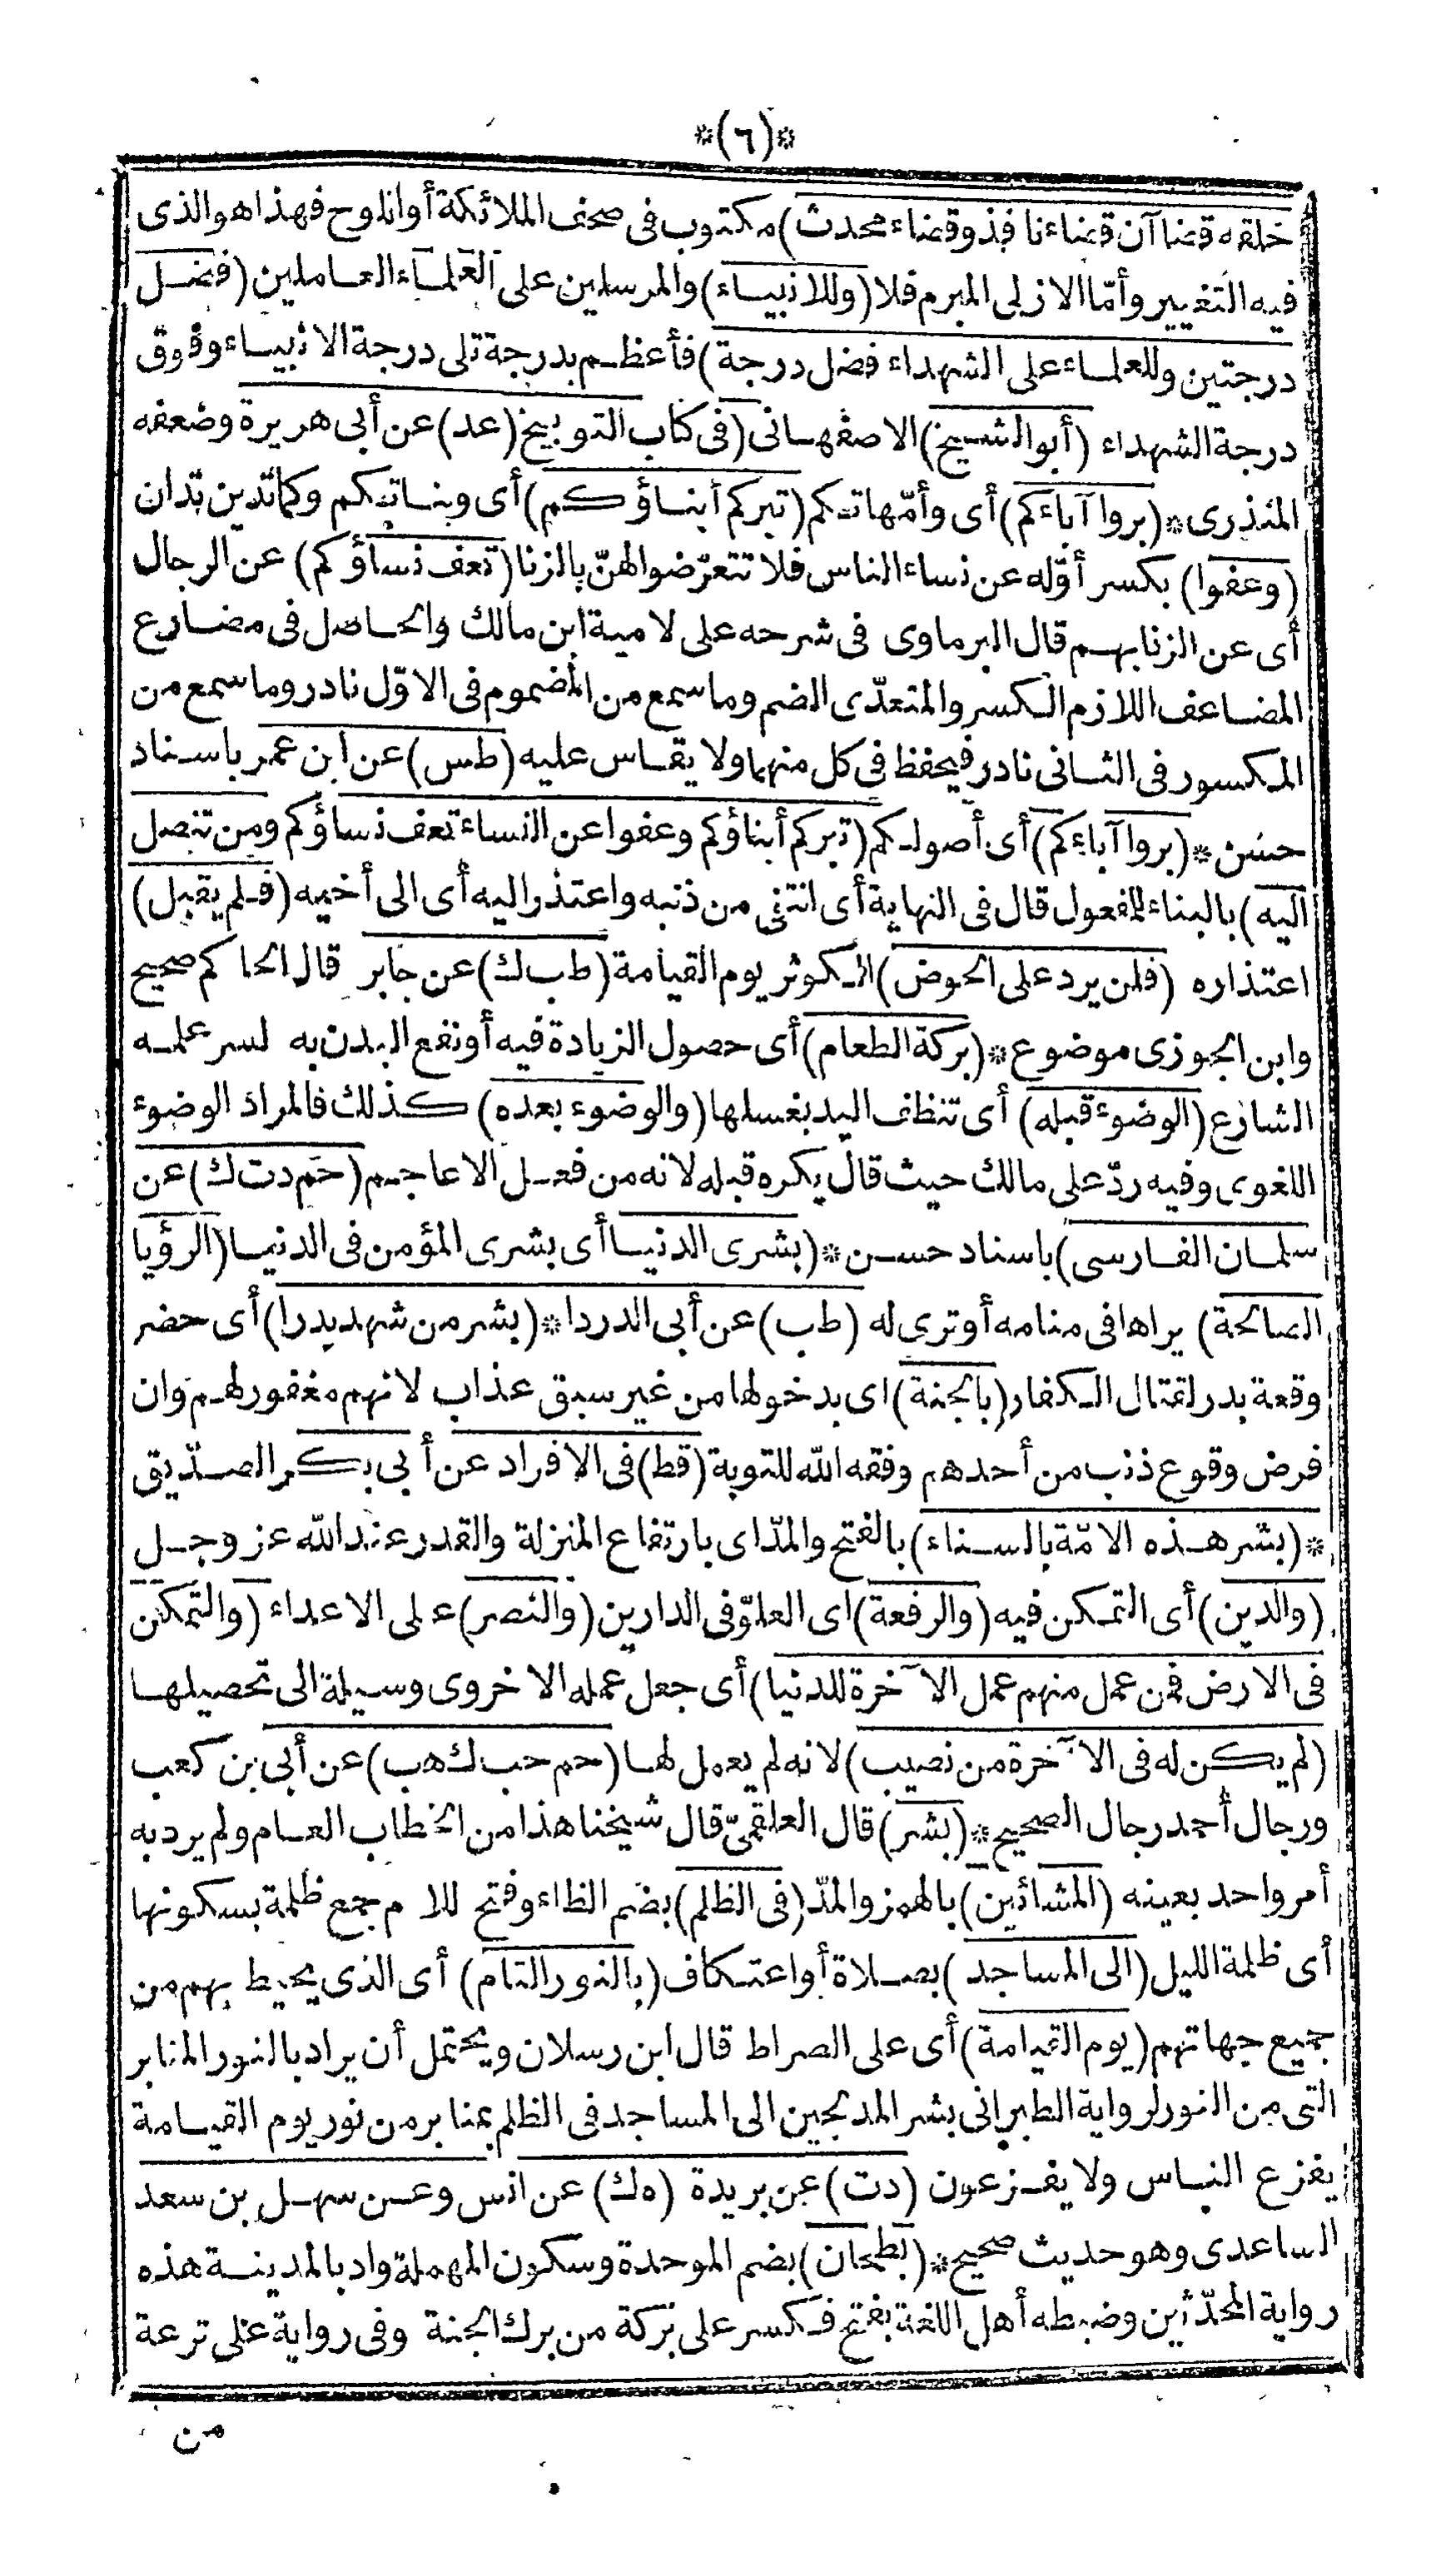 *(٦)*
خلقه قضا آن قضاء نافذ وقضاء محدث) مكتوب فى صحف الملائكة أو اللوح فهذا هو الذى
فيه التغيير وأمّا الازلى المبرم فلا (وللانبياء) والمرسلين على العلماء العاملين (فضل
درجتين وللعلماء على الشهداء فضل درجة) فأعظم بدرجة تلى درجة الانبياء وفوق
درجة الشهداء (أبو الشيخ) الاصفهانى (فى كتاب التوبيخ (عد) عن أبى هريرة وضعفه
المنذرى * (بروا آباءكم) أى وأمّهاتكم (تبركم أبناؤكم) أى وبناتكم وكما تدين تدان
(وعفوا) بكسر أوّله عن نساء الناس فلا تتعرّضوا لهنّ بالزنا (تعف نساؤكم) عن الرجال
أى عن الزنا بهم قال البرماوى فى شرحه على لامية ابن مالك والحاصل فى مضارع
المضاعف اللازم الكسر والمتعدّى الضم وما سمع من المضموم فى الاوّل نادر وما سمع من
المكسور فى الثانى نادر فيحفظ فى كل منهما ولا يقاس عليه (طس) عن ابن عمر باسناد
حسن * (بروا آباءكم) أى أصولكم (تبركم أبناؤكم وعفوا عن النساء تعف نساؤكم ومن تنصل
اليه) بالبناء للمفعول قال فى النهاية أى انتفى من ذنبه واعتذر اليه أى الى أخيه (فلم يقبل)
اعتذاره (فلن يرد على الحوض) الكوثر يوم القيامة (طب ك) عن جابر قال الحاكم صحيح
وابن الجوزى موضوع * (بركة الطعام) أى حصول الزيادة فيه أو نفع البدن به لسر علمه
الشارع (الوضوء قبله) أى تنظيف اليد بغسلها (والوضوء بعده) كذلك فالمراد الوضوء
اللغوى وفيه ردّ على مالك حيث قال يكره قبله لانه من فعل الاعاجم (حم دت ك) عن
سلمان الفارسى) باسناد حسن * (بشرى الدنيا أى بشرى المؤمن فى الدنيا (الرؤيا
الصالحة) يراها فى منامه أو ترى له (طب) عن أبى الدردا * (بشر من شهد بدرا) أى حضر
وقعة بدر لقتال الكفار (بالجنة) اى بدخولها من غير سبق عذاب لانهم مغفور لهم وان
فرض وقوع ذنب من أحدهم وفقه الله للتوبة (قط) فى الافراد عن أبى بكر الصدّيق
* (بشر هذه الامّة بالسناء) بالفتح والمدّ اى بارتفاع المنزلة والقدر عند الله عز وجل
(والدين) أى التمكن فيه (والرفعة) اى العلوّ فى الدارين (والنصر) على الاعداء (والتمكن
فى الارض فمن عمل منهم عمل الآخرة للدنيا) أى جعل عمله الاخروى وسيلة الى تحصيلها
(لم يكن له فى الآخرة من نصيب) لانه لم يعمل لها (حم حب ك هب) عن أبىّ بن كعب
ورجال أحمد رجال الصحيح * (بشر) قال العلقمىّ قال شيخنا هذا من الخطاب العام ولم يرد به
أمر واحد بعينه (المشائين) بالهمز والمدّ (فى الظلم) بضم الظاء وفتح للام جمع ظلمة بسكونها
أى ظلمة الليل (الى المساجد) بصلاة أو اعتكاف (بالنور التام) أى الذى يحيط بهم من
جميع جهاتهم (يوم القيامة) أى على الصراط قال ابن رسلان ويحتمل أن يراد بالنور المنابر
التى من النور لرواية الطبرانى بشر المدلجين الى المساجد فى الظلم بمنابر من نور يوم القيامة
يفزع الناس ولا يفزعون (دت) عن بريدة (ه ك) عن انس وعن سهل بن سعد
الساعدى وهو حديث صحيح * (بطحان) بضم الموحدة وسكون المهملة واد بالمدينة هذه
رواية المحدّثين وضبطه أهل اللغة بفتح فكسر على بركة من برك الجنة وفى رواية على ترعة
من